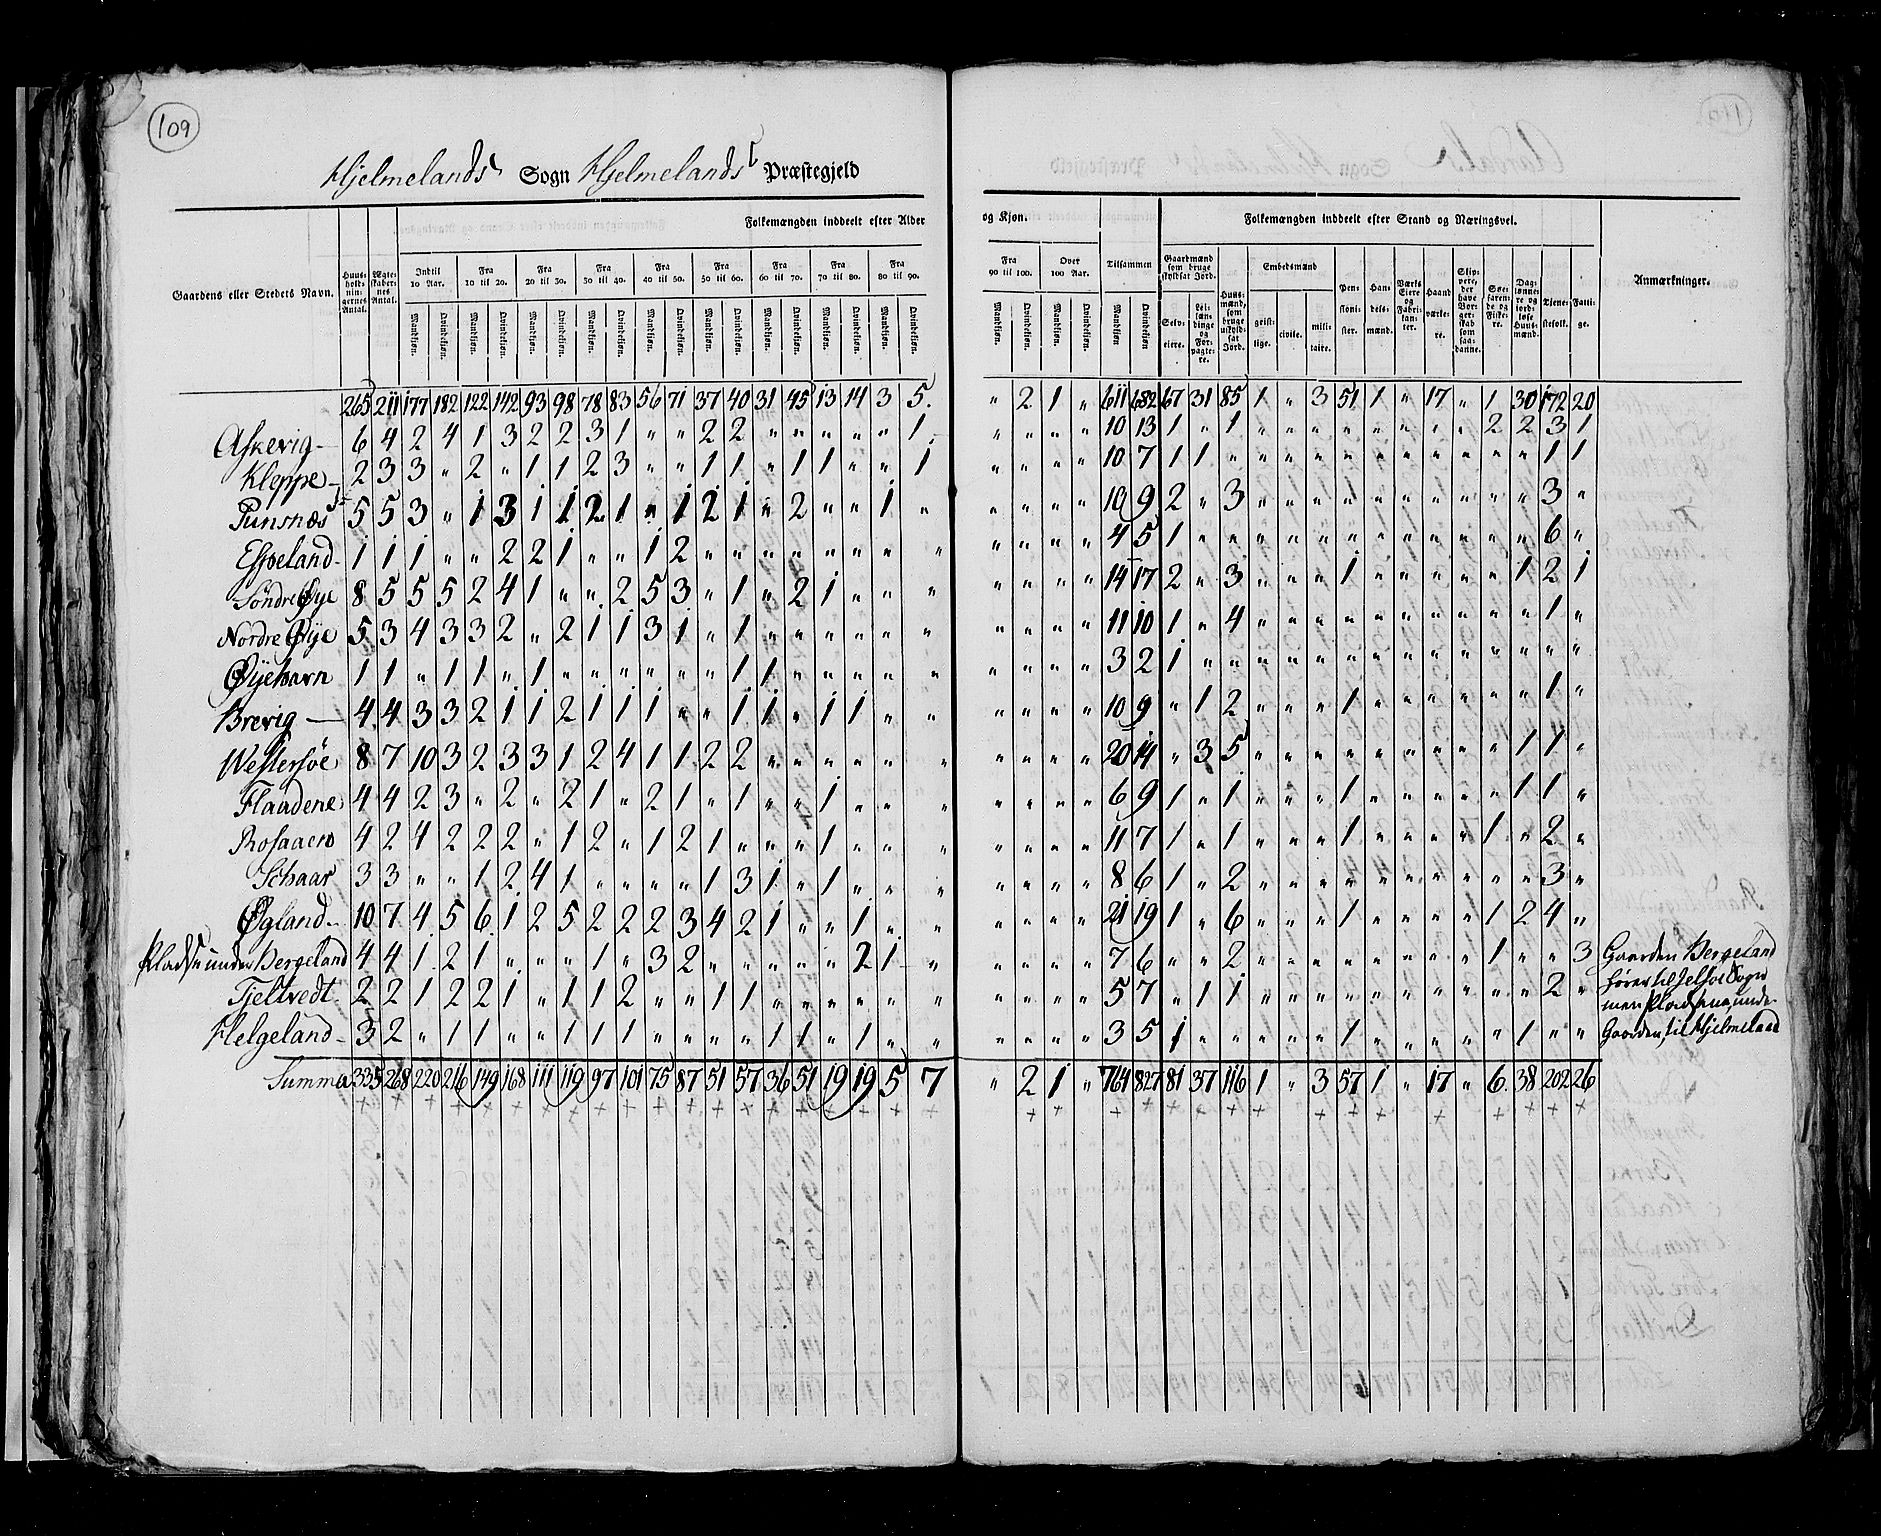 109
Hjelmelands Sogn Hjelmelands Præstegjeld
Gaardens eller Stedets Navn.
Huusholdningernes Antal.
Ægteskabernes Antal.
Folkemængden inddeelt efter Alder og Kjøn.
Indtil 10 Aar. Fra 10 til 20. Fra 20 til 30. Fra 30 til 40. Fra 40 til 50. Fra 50 til 60. Fra 60 til 70. Fra 70 til 80. Fra 80 til 90. Fra 90 til 100. Over 100 Aar. Tilsammen
Mandkjøn. Qvindekjøn.
Folkemængden inddeelt efter Stand og Næringsvei.
Gaardmænd som bruge skyldsat Jord.
Selveiere. Leilændinge og Forpagtere.
Huusmænd, som bruge uskyldsat Jord.
Embedsmænd
geistlige. civile. militaire.
Pensionister. Handelsmænd. Værks Eiere og Fabrikanter. Haandværkere.
Søefarende og Fiskere. Daglønnere og jordløse Huusmænd. Tjenestefolk. Fattige.
Anmærkninger.
265 211 177 182 122 142 93 98 78 83 56 71 37 40 31 45 13 14 3 5. " 2 1 " 611 682 67 31 85 1 " 3 51 1 " 17 " 1 30 172 20
Askevig 6 4 2 4 1 3 2 2 3 1 " " 2 2 " " " " " 1 " " " " 10 13 1 " 1 " " " " " " " " 2 2 3 1
Kleppe 2 3 3 " 2 " 1 1 2 3 " " 1 1 " 1 1 " " 1 " " " " 10 7 1 1 " " " " " " " " " " " 1 1
Punsnæs 5 5 3 " 1 3 1 1 2 1 " 1 2 1 " 2 " " 1 " " " " " 10 9 2 " 3 " " " " " " " " " " 3 "
Espeland 1 1 1 " " 2 2 1 " " 1 2 " " " " " " " " " " " " 4 5 1 " " " " " " " " " " " " 6 "
Søndre Øye 8 5 5 5 2 4 1 " " 2 5 3 " 1 " 2 1 " " " " " " " 14 17 2 " 3 " " " 1 " " " " " 1 2 1
Nordre Øije 5 3 4 3 3 2 " 2 1 1 3 1 " 1 " " " " " " " " " " 11 10 1 " 4 " " " " " " " " " " 1 "
Øijehavn 1 1 " 1 1 " 1 " " " " " " 1 1 " " " " " " " " " 3 2 1 " " " " " " " " " " " " " "
Brevig 4 4 3 3 2 1 1 2 1 1 1 " " 1 1 " 1 1 " " " " " " 10 9 " 1 2 " " " 1 " " " " " " 1 "
Westersøe 8 7 10 3 2 3 3 1 2 4 1 1 2 2 " " " " " " " " " " 20 14 " 3 5 " " " " " " " " " 1 1 "
Flaadene 4 4 2 3 " 2 " 2 1 " 2 1 " 1 " " 1 " " " " " " " 6 9 1 " 1 " " " 1 " " " " " 1 1 "
Rosaaen 4 2 4 2 2 2 " 1 2 " 1 2 1 " " " 1 " " " " " " " 11 7 1 " 1 " " " 1 " " " " 1 " 2 "
Schaar 3 3 " " 1 2 4 1 " " " " 1 3 1 " 1 " " " " " " " 8 6 1 " 2 " " " " " " " " " " 3 "
Øgland 10 7 4 5 6 1 2 5 2 2 2 3 4 2 1 " " 1 " " " " " " 21 19 1 " 6 " " " 1 " " " " 1 2 4 "
Pladse under Bergeland 4 4 1 2 1 " " " 1 " 3 2 " " " " " 2 1 " " " " " 7 6 " " 2 " " " " " " " " 1 " " 3 Gaarden Bergeland
Tjeltvedt 2 2 1 2 2 1 " 1 1 2 " " 1 1 " " " " " " " " " " 5 7 " 1 1 " " " " " " " " " " 2 " hører til Jelsøe Sogn
men Pladsene under
Helgeland 3 2 " 1 1 " " 1 1 1 " " " " 1 1 " 1 " " " " " " 3 5 1 " " " " " 1 " " " " " 1 " " Gaarden til Hjelmeland
Summa 335 268 220 216 149 168 111 119 97 101 75 87 51 57 36 51 19 19 5 7 " 2 1 " 764 827 81 37 116 1 " 3 57 1 " 17 " 6. 38 202 26